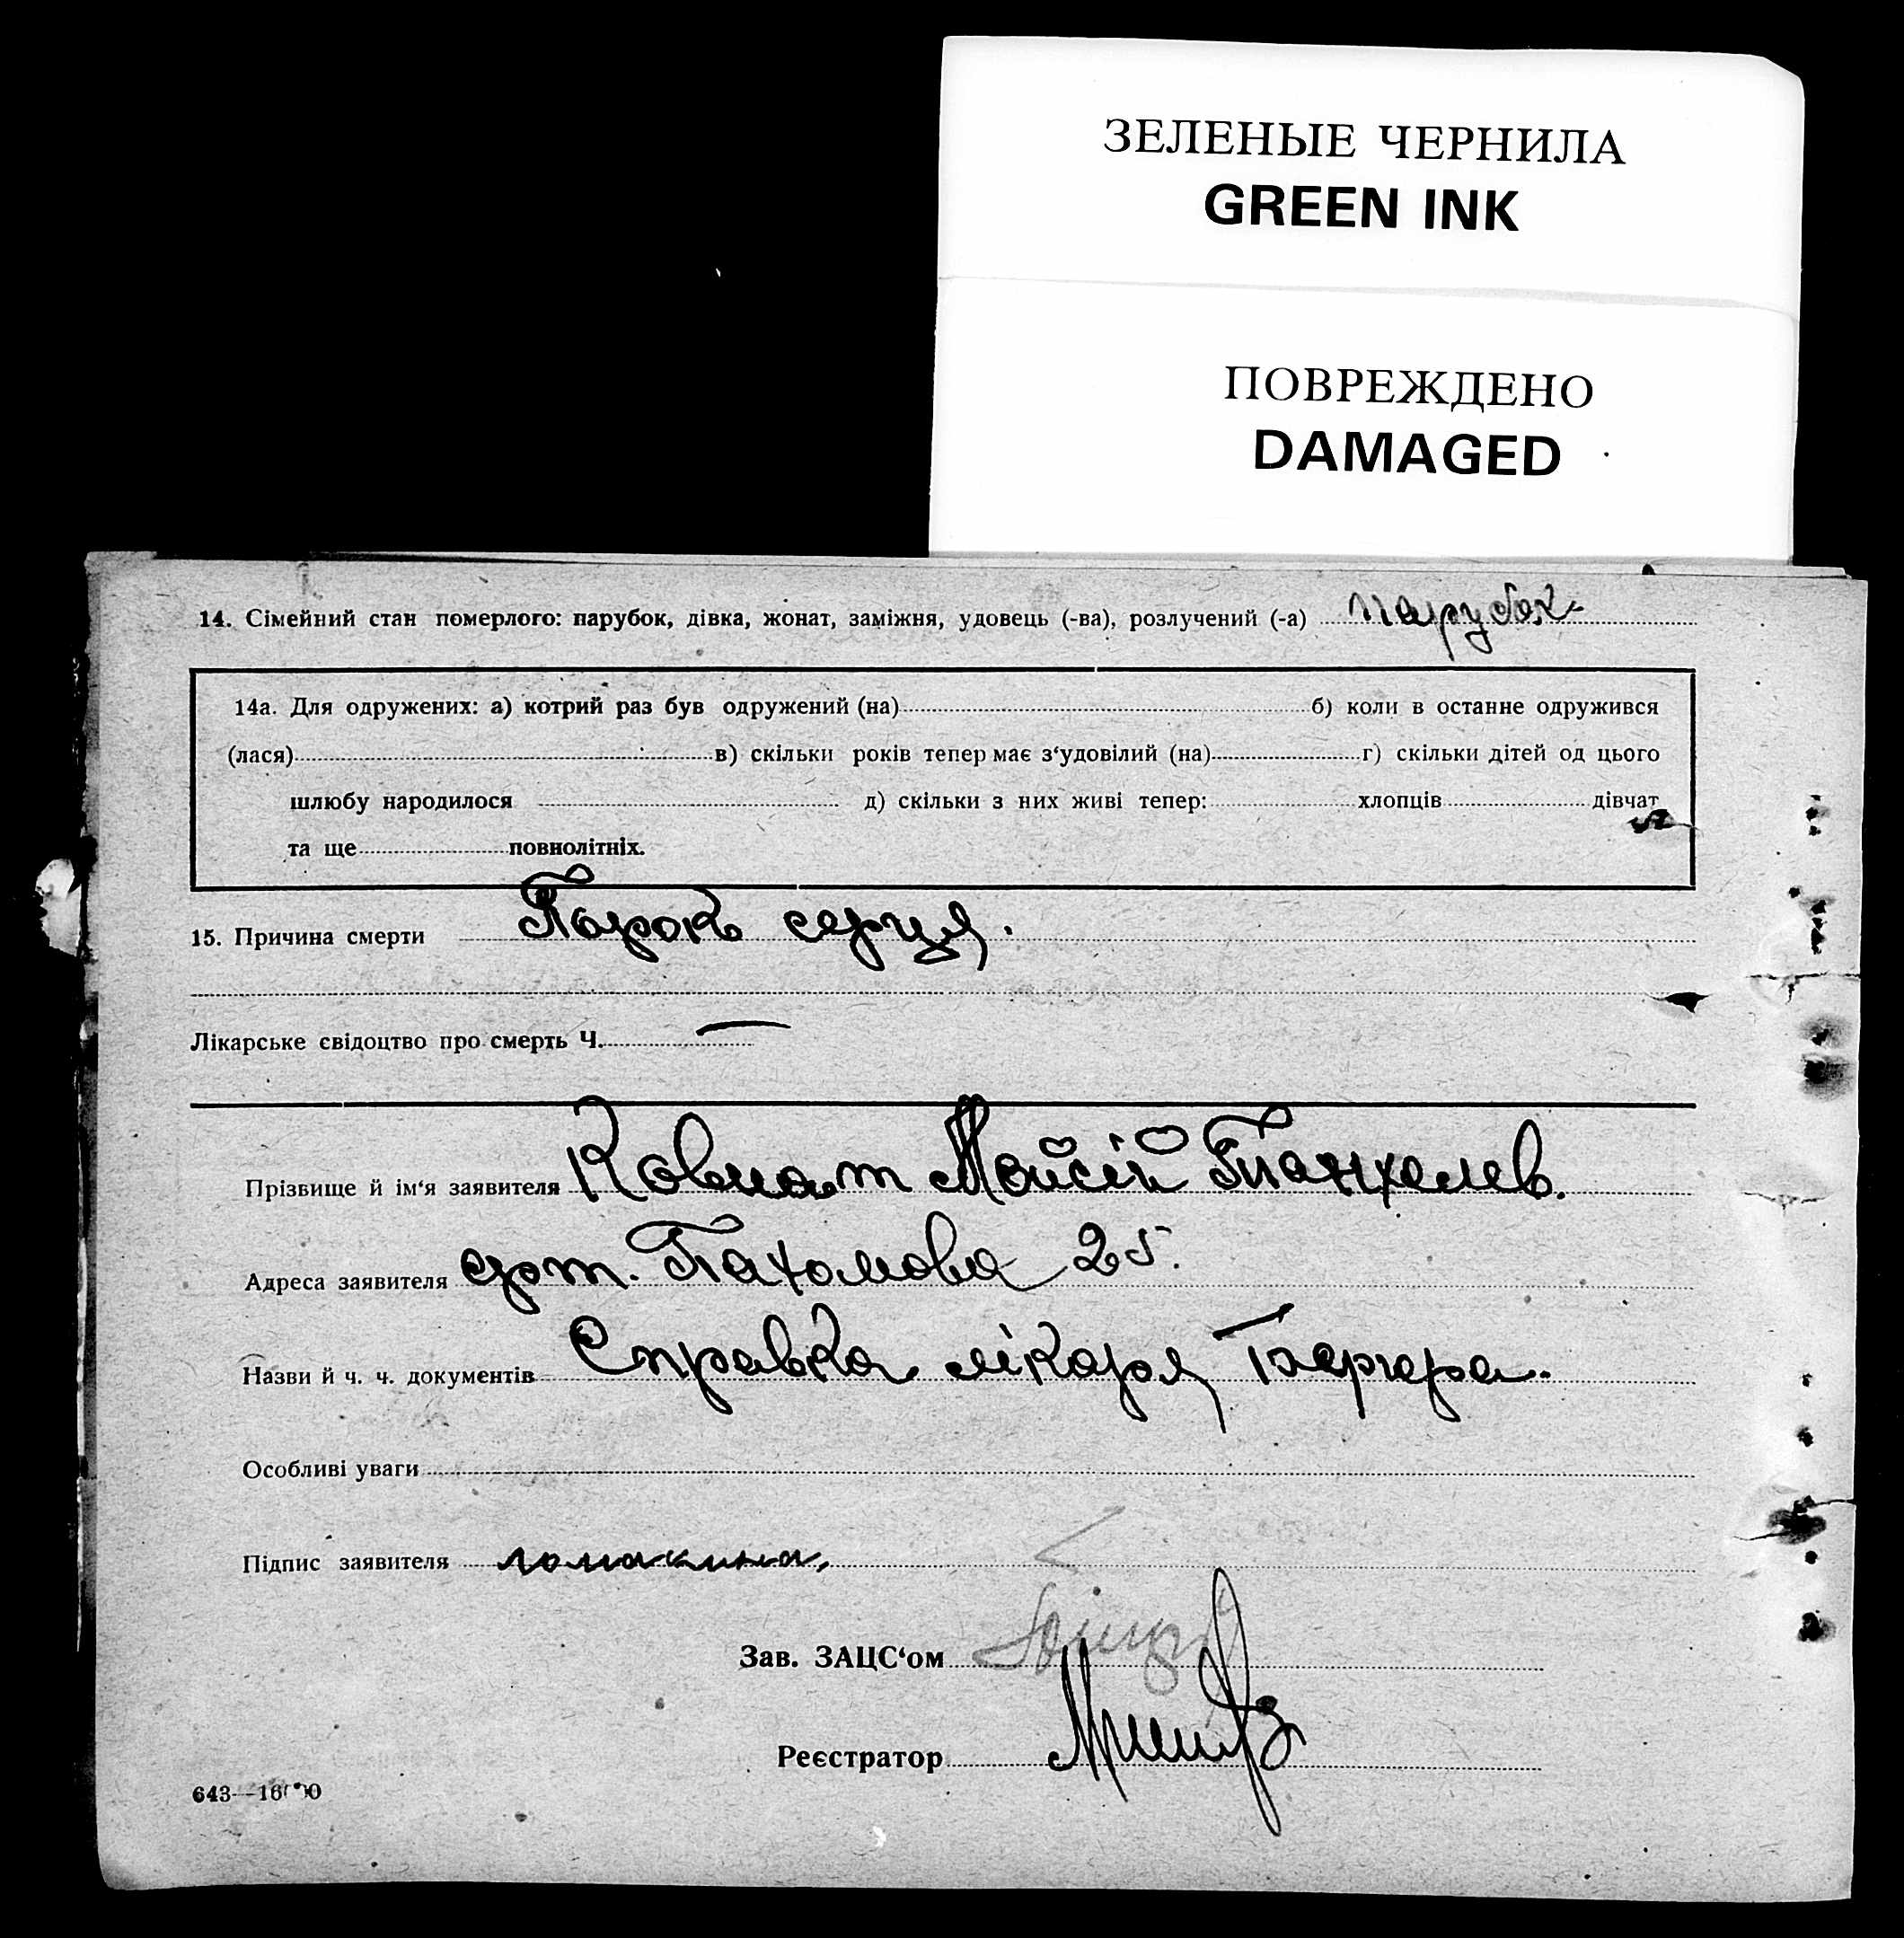 ЗЕЛЕНЫЕ ЧЕРНИЛА
GREEN INK
ПОВРЕЖДЕНО
DAMAGED
14. Сімейний стан померлого: парубок, дівка, жонат, заміжня, удовець (-ва), розлучений (-а) парубок
14а. Для одружених: а) котрий раз був одружений (на) б) коли в останне одружився
(лася) в) скільки років тепер має з‘удовілий (на) г) скільки дітей од цього
шлюбу народилося д) скільки з них живі тепер: хлопців дівчат
та ще повнолітніх.
15. Причина смерти Порок серця.
Лікарське свідоцтво про смерть Ч. —
Прізвище й ім‘я заявителя Мойсій
Адреса заявителя Пахомова 25.
Назви й ч. ч. документів Справка лікаря
Особливі уваги
Підпис заявителя
Зав. ЗАЦС‘ом
Реєстратор
643—16